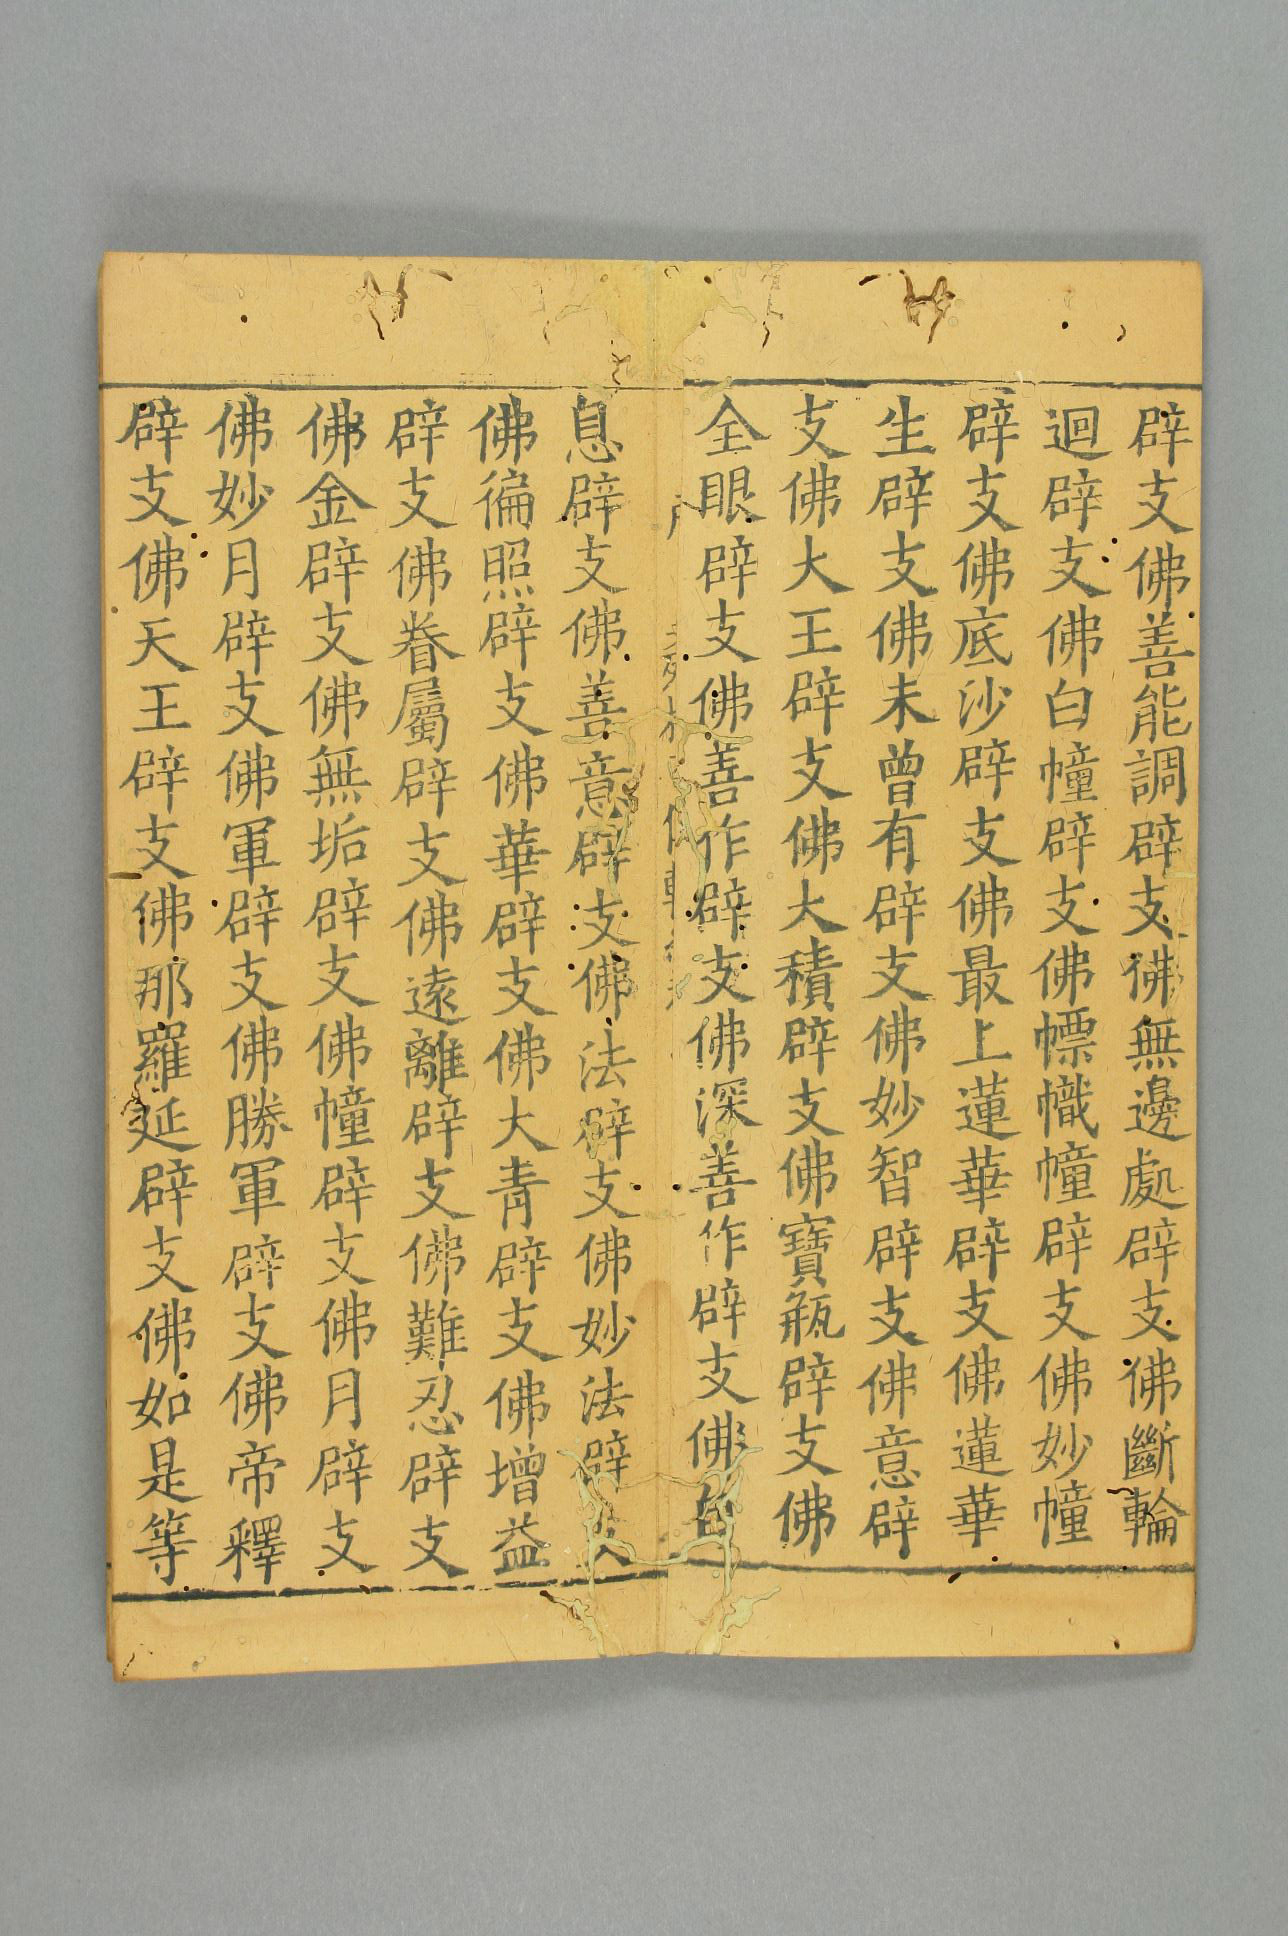 辟支佛善能調辟支佛無邊處辟支佛斷輪
迴辟支佛白幢辟支佛幖幟幢辟支佛妙幢
辟支佛底沙辟支佛最上蓮華辟支佛蓮華
生辟支佛未曾有辟支佛妙智辟支佛意辟
支佛大王辟支佛大積辟支佛寶瓶辟支佛
全眼辟支佛善作辟支佛深善作辟支佛
息辟支佛善意辟支佛法辟支佛妙法辟支
佛徧照辟支佛華辟支佛大青辟支佛增益
辟支佛眷屬辟支佛遠離辟支佛難忍辟支
佛金辟支佛無垢辟支佛幢辟支佛月辟支
佛妙月辟支佛軍辟支佛勝軍辟支佛帝釋
辟支佛天王辟支佛那羅延辟支佛如是等